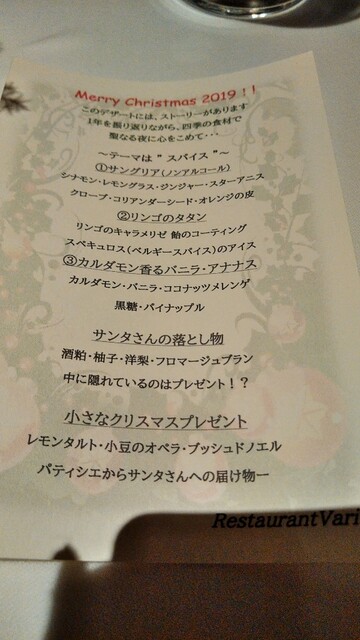 Merry Christmas 2019！！
このデザートには、ストーリーがあります
1年を振り返りながら、四季の食材で
聖なる夜に心をこめて・・・
～テーマは＂スパイス＂～
①サングリア(ノンアルコール)
シナモン・レモングラス・ジンジャー・スターアニス
クローブ・コリアンダーシード・オレンジの皮
②リンゴのタタン
リンゴのキャラメリゼ 飴のコーティング
スペキュロス(ベルギースパイス)のアイス
③カルダモン香るバニラ・アナナス
カルダモン・バニラ・ココナッツメレンゲ
黒糖・パイナップル
サンタさんの落とし物
酒粕・柚子・洋梨・フロマージュブラン
中に隠れているのはプレゼント！？
小さなクリスマスプレゼント
レモンタルト・小豆のオペラ・ブッシュドノエル
パティシエからサンタさんへの届け物ー
RestaurantVari